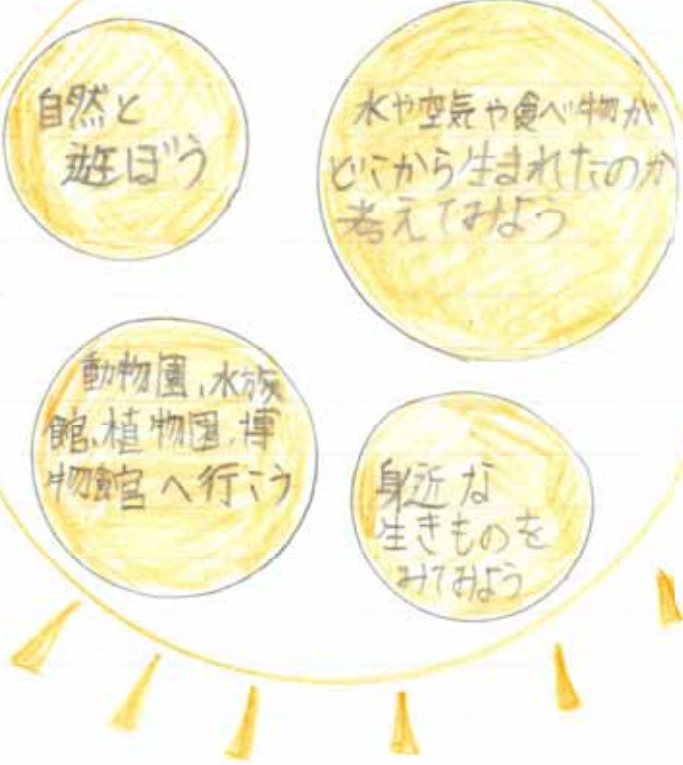 自然と
遊ぼう
水や空気や食べ物が
どこから生まれたのか
考えてみよう
動物園、水族
館、植物園、博
物館へ行こう
身近な
生きものを
みてみよう